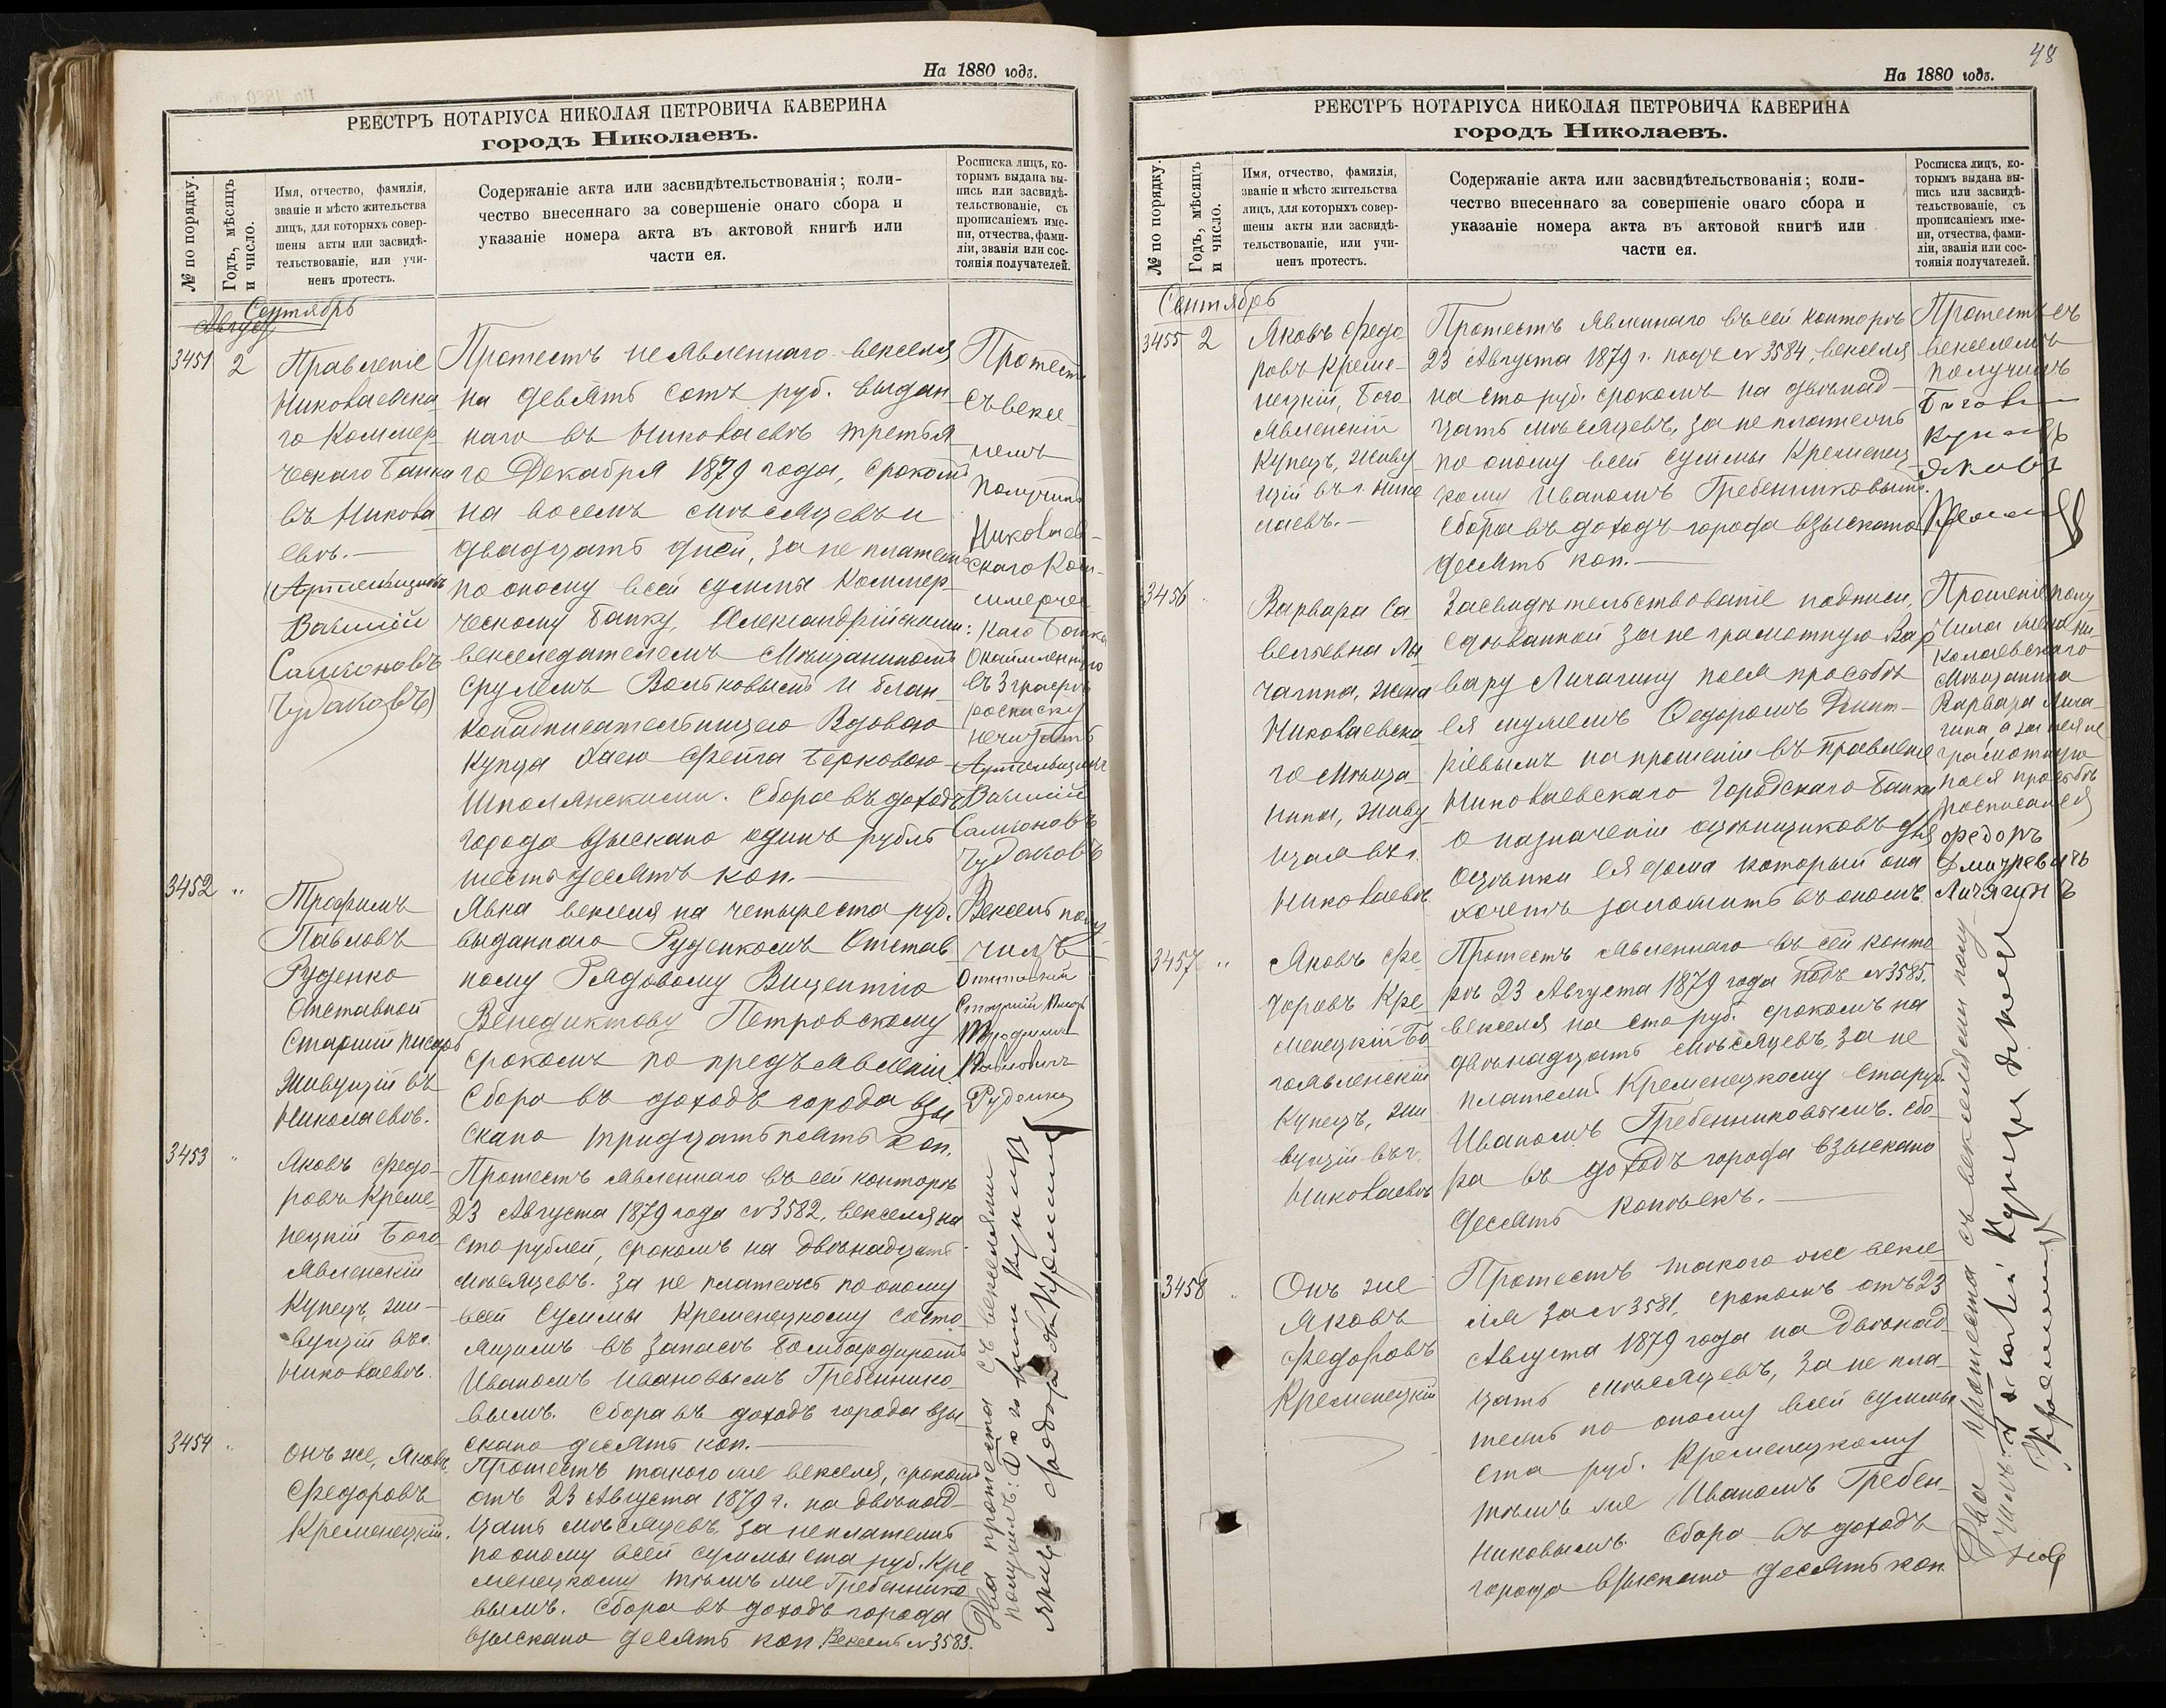 На 1880 годъ.
РЕЕСТРЪ НОТАРІУСА НИКОЛАЯ ПЕТРОВИЧА КАВЕРИНА
городъ Николаевъ.
№ по порядку.
Годъ, мѣсяцъ
и число.
Имя, отчество, фамилія,
званіе и мѣсто жительства
лицъ, для которыхъ совер-
шены акты или засвидѣ-
тельствованіе, или учи-
ненъ протестъ.
Содержаніе акта или засвидѣтельствованія; коли-
чество внесеннаго за совершеніе онаго сбора и
указаніе номера акта въ актовой книгѣ или
части ея.
Росписка лицъ, ко-
торымъ выдана вы-
пись или засвидѣ-
тельствованіе, съ
прописаніемъ име-
ни, отчества, фами-
ліи, званія или сос-
тоянія получателей.
Сентябрь
Август
3451
2
Правленіе
Николаевска
го Коммер
ческаго Банка
въ Никола
евѣ.
(Артельщикъ
Василій
Самсоновъ
Чудаковъ)
Протестъ неявленнаго векселя
на девять сотъ руб. выдан
наго въ Николаевѣ третья
го Декабря 1879 года, срокомъ
на восемь мѣсяцевъ и
двадцать дней, за не платежъ
по оному всей суммы Коммер
ческому Банку, Александрійскими:
векселедателемъ Мѣщаниномъ
Срулемъ Волковымъ и блан
конадписательницею Вдовою
Купца Хаею Фейга Берковою
Шполянскими. Сбора въ доходъ
города взыскано одинъ рубль
шестьдесятъ коп.
Протестъ
съ вексе
лемъ
получилъ
Николаев
скаго Ком-
мерчес
каго Банка
Окаймленную
въ 3 графѣ
росписку
не читать
Артельщикъ
Василій
Самсоновъ
Чудаковъ
3452
"
Трофимъ
Павловъ
Руденко
Отставной
Старшій писарь
Живущій въ
Николаевѣ.
Явка векселя на четыреста руб.
выданнаго Руденкомъ Отстав
ному Рядовому Викентію
Венедиктову Петровскому
срокомъ по предъявленіи.
Сбора въ доходъ города взы
скано тридцать пять коп.
Вексель полу
чилъ
Отставной
Старшій Писарь
Трофимъ
Павловичъ
Руденко
3453
"
Яковъ Федо-
ровъ Креме
нецкій Бого
явленскій
Купецъ, жи-
вущій въ г.
Николаевѣ.
Протестъ явленнаго въ сей конторѣ
23 Августа 1879 года № 3582, векселя на
сто рублей, срокомъ на двѣнадцать
мѣсяцевъ. за не платежъ по оному
всей суммы Кременецкому состо
ящимъ въ запасѣ Бомбардиромъ
Иваномъ Ивановымъ Гребеннико-
вымъ. Сбора въ доходъ города взы
скано десять коп.
3454
"
Онъ же, Яковъ
Федоровъ
Кременецкій.
Протестъ такого же векселя, срокомъ
отъ 23 Августа 1879 г. на двѣнад-
цать мѣсяцевъ за неплатежъ
по оному всей суммы ста руб. Кре
менецкому тѣмъ же Гребеннико
вымъ. Сбора въ доходъ города
взыскано десять коп. Вексель № 3583.
Два протеста съ векселями
получилъ:
48
На 1880 годъ.
РЕЕСТРЪ НОТАРІУСА НИКОЛАЯ ПЕТРОВИЧА КАВЕРИНА
городъ Николаевъ.
№ по порядку.
Годъ, мѣсяцъ
и число.
Имя, отчество, фамилія,
званіе и мѣсто жительства
лицъ, для которыхъ совер-
шены акты или засвидѣ-
тельствованіе, или учи-
ненъ протестъ.
Содержаніе акта или засвидѣтельствованія; коли-
чество внесеннаго за совершеніе онаго сбора и
указаніе номера акта въ актовой книгѣ или
части ея.
Росписка лицъ, ко-
торымъ выдана вы-
пись или засвидѣ-
тельствованіе, съ
прописаніемъ име-
ни, отчества, фами-
ліи, званія или сос-
тоянія получателей.
Сентябрь
3455
2
Яковъ Федо-
ровъ Креме-
нецкій, Бого
явленскій
Купецъ, живу
щій въ г. Нико
лаевѣ.
Протестъ явленнаго въ сей конторѣ
23 Августа 1879 г. подъ № 3584, векселя
на сто руб. срокомъ на двѣнад-
цать мѣсяцевъ, за не платежъ
по оному всей суммы Кременец
кому Иваномъ Гребенниковымъ.
Сбора въ доходъ города взыскано
десять коп.
Протестъ съ
векселемъ
получилъ
купецъ
Яковъ
3456
"
Варвара Са
вельевна Ли
чагина, жена
Николаевска
го мѣща
нина, живу
щая въ г.
Николаевѣ.
Засвидѣтельствованіе подписи,
сдѣланной за не грамотную Вар
вару Личагину по ея просьбѣ
ея мужемъ Федоромъ Дмит-
ріевымъ на прошеніи въ Правленіе
Николаевскаго Городского Банка
о назначеніи оцѣнщиковъ для
оцѣнки ея дома который она
хочетъ заложить въ ономъ.
Прошеніе полу
чила жена Ни-
колаевскаго
Мѣщанина
Варвара Лича-
гина а за нея не
грамотную
по ея просьбѣ
росписался
Федоръ
Дмитревичъ
Личагинъ
3457
"
Яковъ Фе-
доровъ Кре
менецкій Бо
гоявленскій
Купецъ, жи
вущій въ г.
Николаевѣ
Протестъ явленнаго въ сей конто
рѣ 23 Августа 1879 года подъ № 3585.
векселя на сто руб. срокомъ на
двѣнадцать мѣсяцевъ, за не
платежъ Кременецкому ста руб.
Иваномъ Гребенниковымъ. Сбо-
ра въ доходъ города взыскано
десять копѣекъ.
3458
"
Онъ же
Яковъ
Федоровъ
Кременецкій
Протестъ такого же вексе
ля за № 3581, срокомъ отъ 23
Августа 1879 года на двѣнад-
цать мѣсяцевъ, за не пла-
тежъ по оному всей суммы
ста руб. Кременецкому
тѣмъ же Иваномъ Гребен-
никовымъ. Сбора въ доходъ
города взыскано десять коп.
Два протеста съ векселями полу
чилъ: